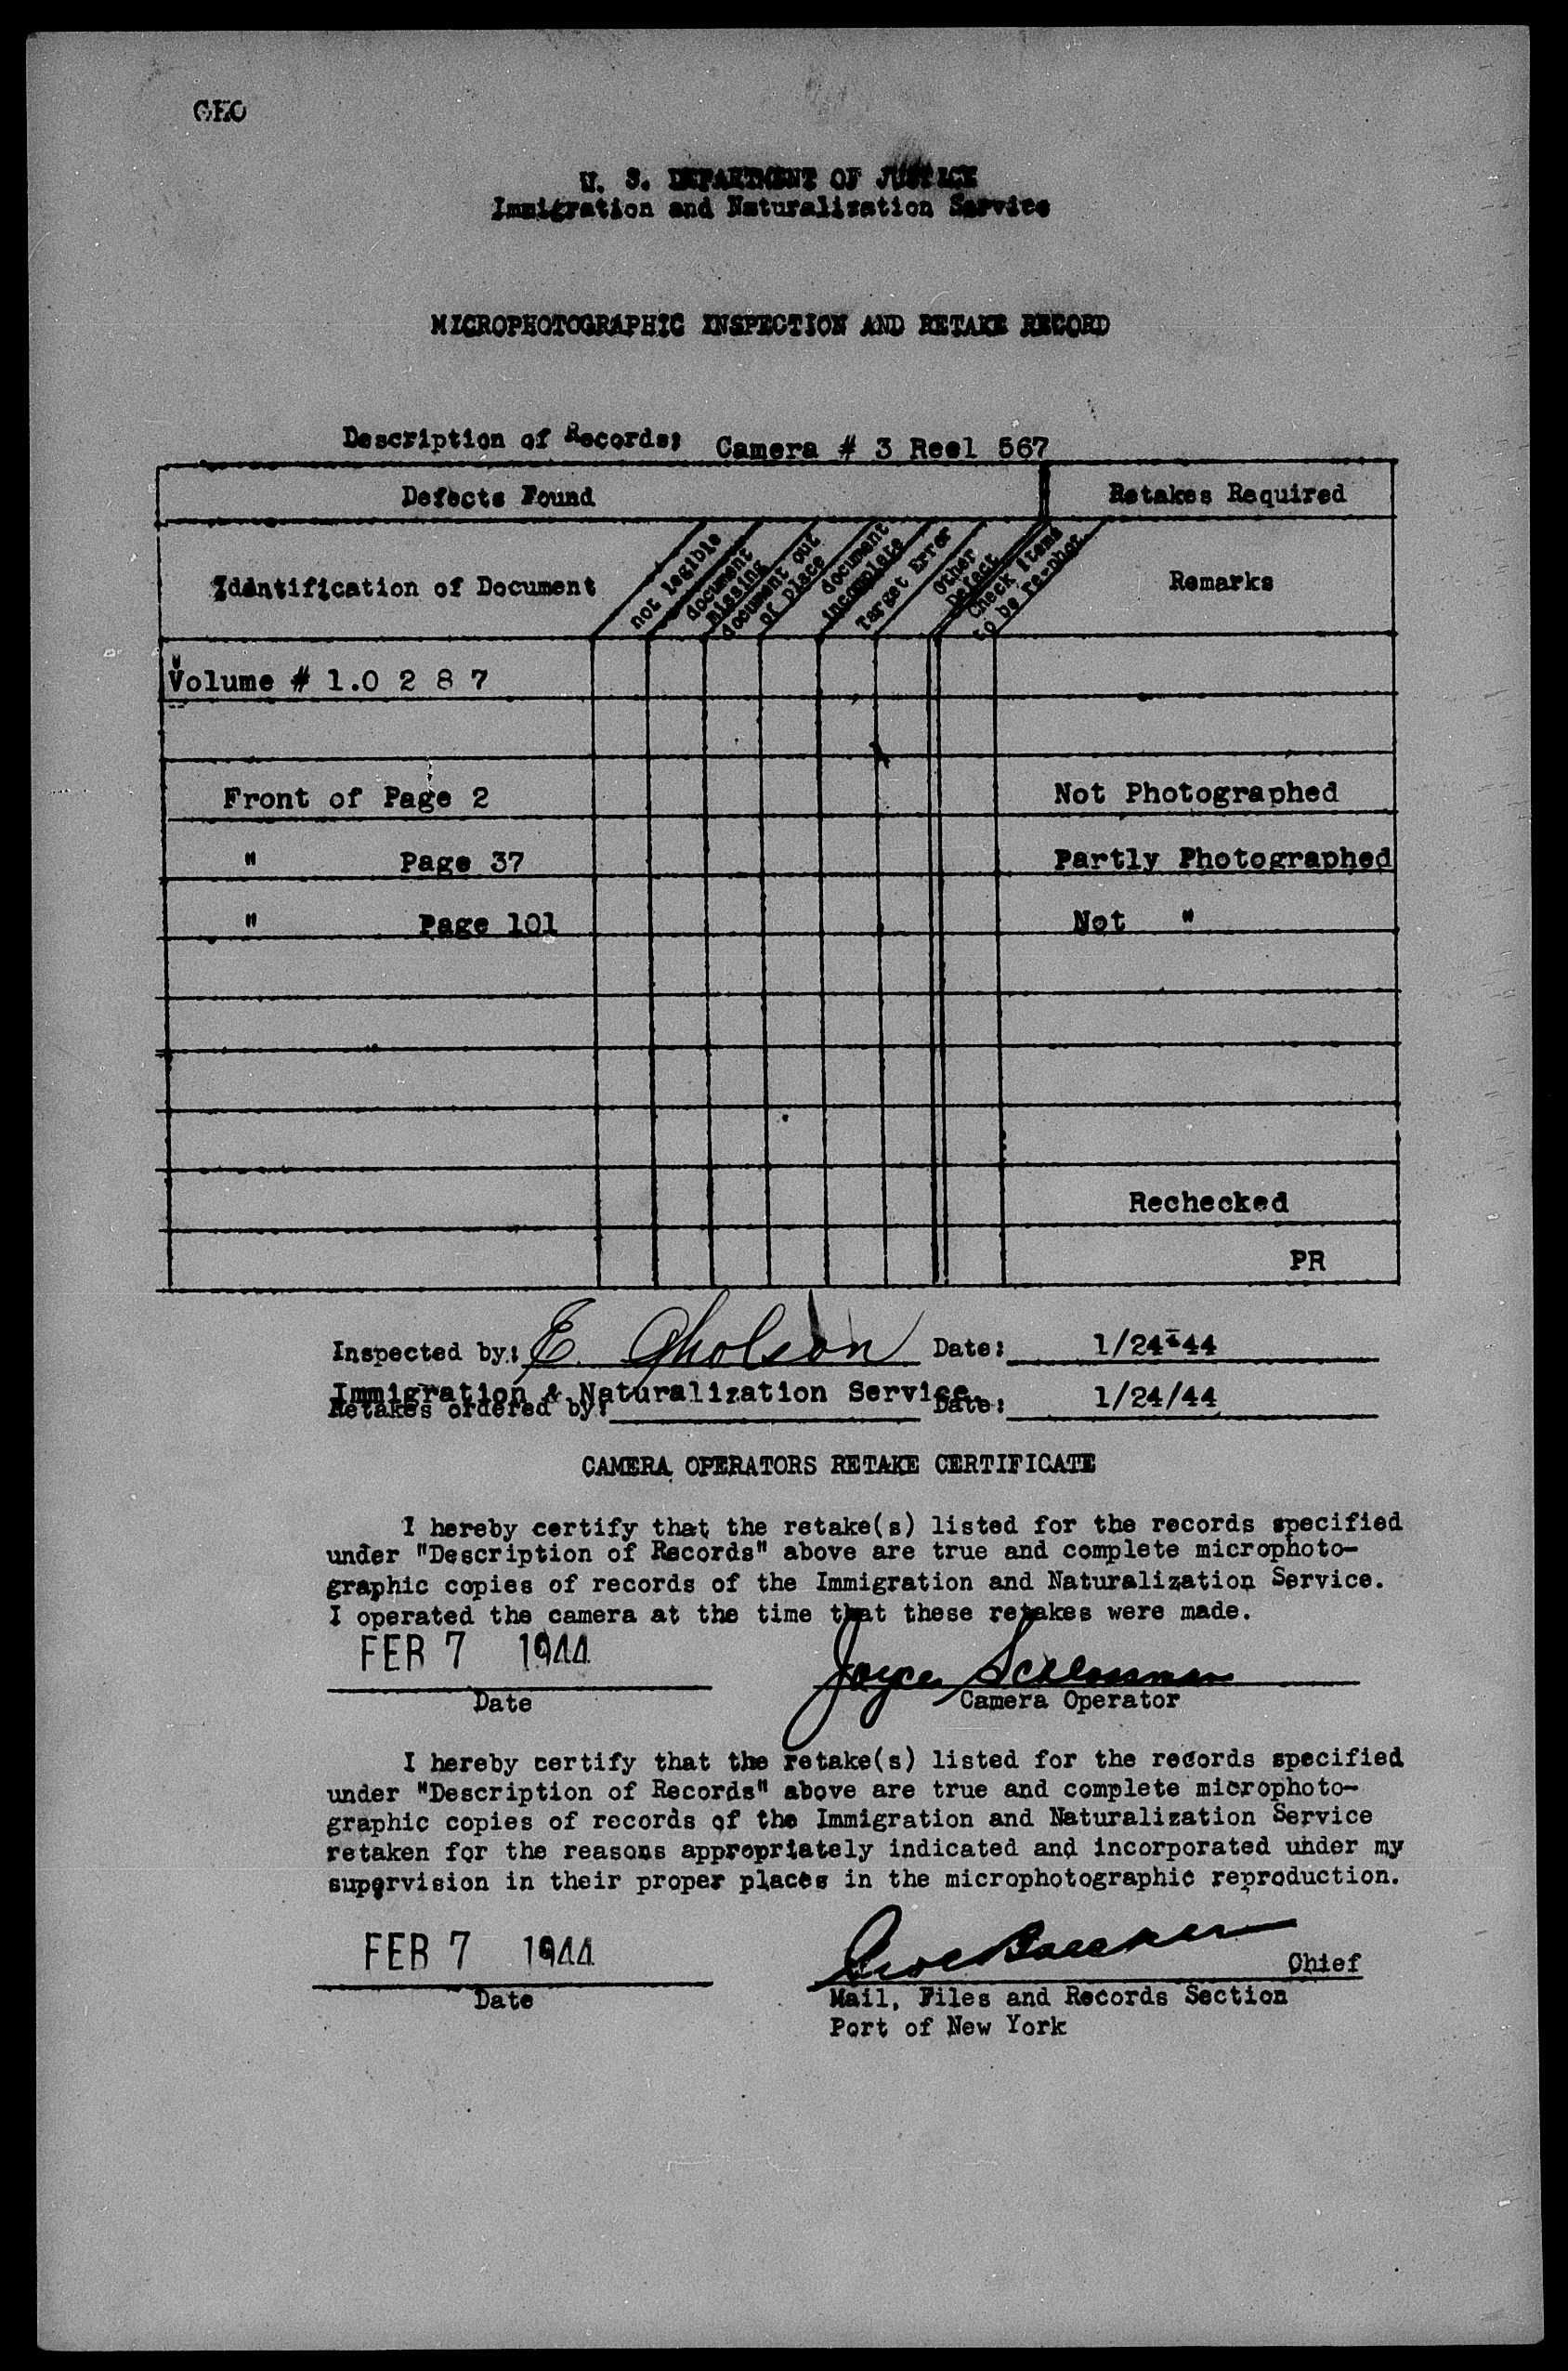 GEO
U. S. DEPARTMENT OF JUSTICE
Immigration and Naturalization Service
MICROPHOTOGRAPHIC INSPECTION AND RETAKE RECORD
Description of Records: Camera # 3 Reel 567
Defects Found Retakes Required
Identification of Document not legible document missing document out of place document incomplete Target Error Other Defect Check items to be re-phot. Remarks
Volume # 1.0 2 8 7
Front of Page 2 Not Photographed
" Page 37 Partly Photographed
" Page 101 Not "
Rechecked
PR
Inspected by: E. Gholson Date: 1/24-44
Immigration & Naturalization Service.
Retakes ordered by: Date: 1/24/44
CAMERA OPERATORS RETAKE CERTIFICATE
I hereby certify that the retake(s) listed for the records specified
under "Description of Records" above are true and complete microphoto-
graphic copies of records of the Immigration and Naturalization Service.
I operated the camera at the time that these retakes were made.
FEB 7 1944 Joyce
Date Camera Operator
I hereby certify that the retake(s) listed for the records specified
under "Description of Records" above are true and complete microphoto-
graphic copies of records of the Immigration and Naturalization Service
retaken for the reasons appropriately indicated and incorporated under my
supervision in their proper places in the microphotographic reproduction.
FEB 7 1944 Chief
Date Mail, Files and Records Section
Port of New York